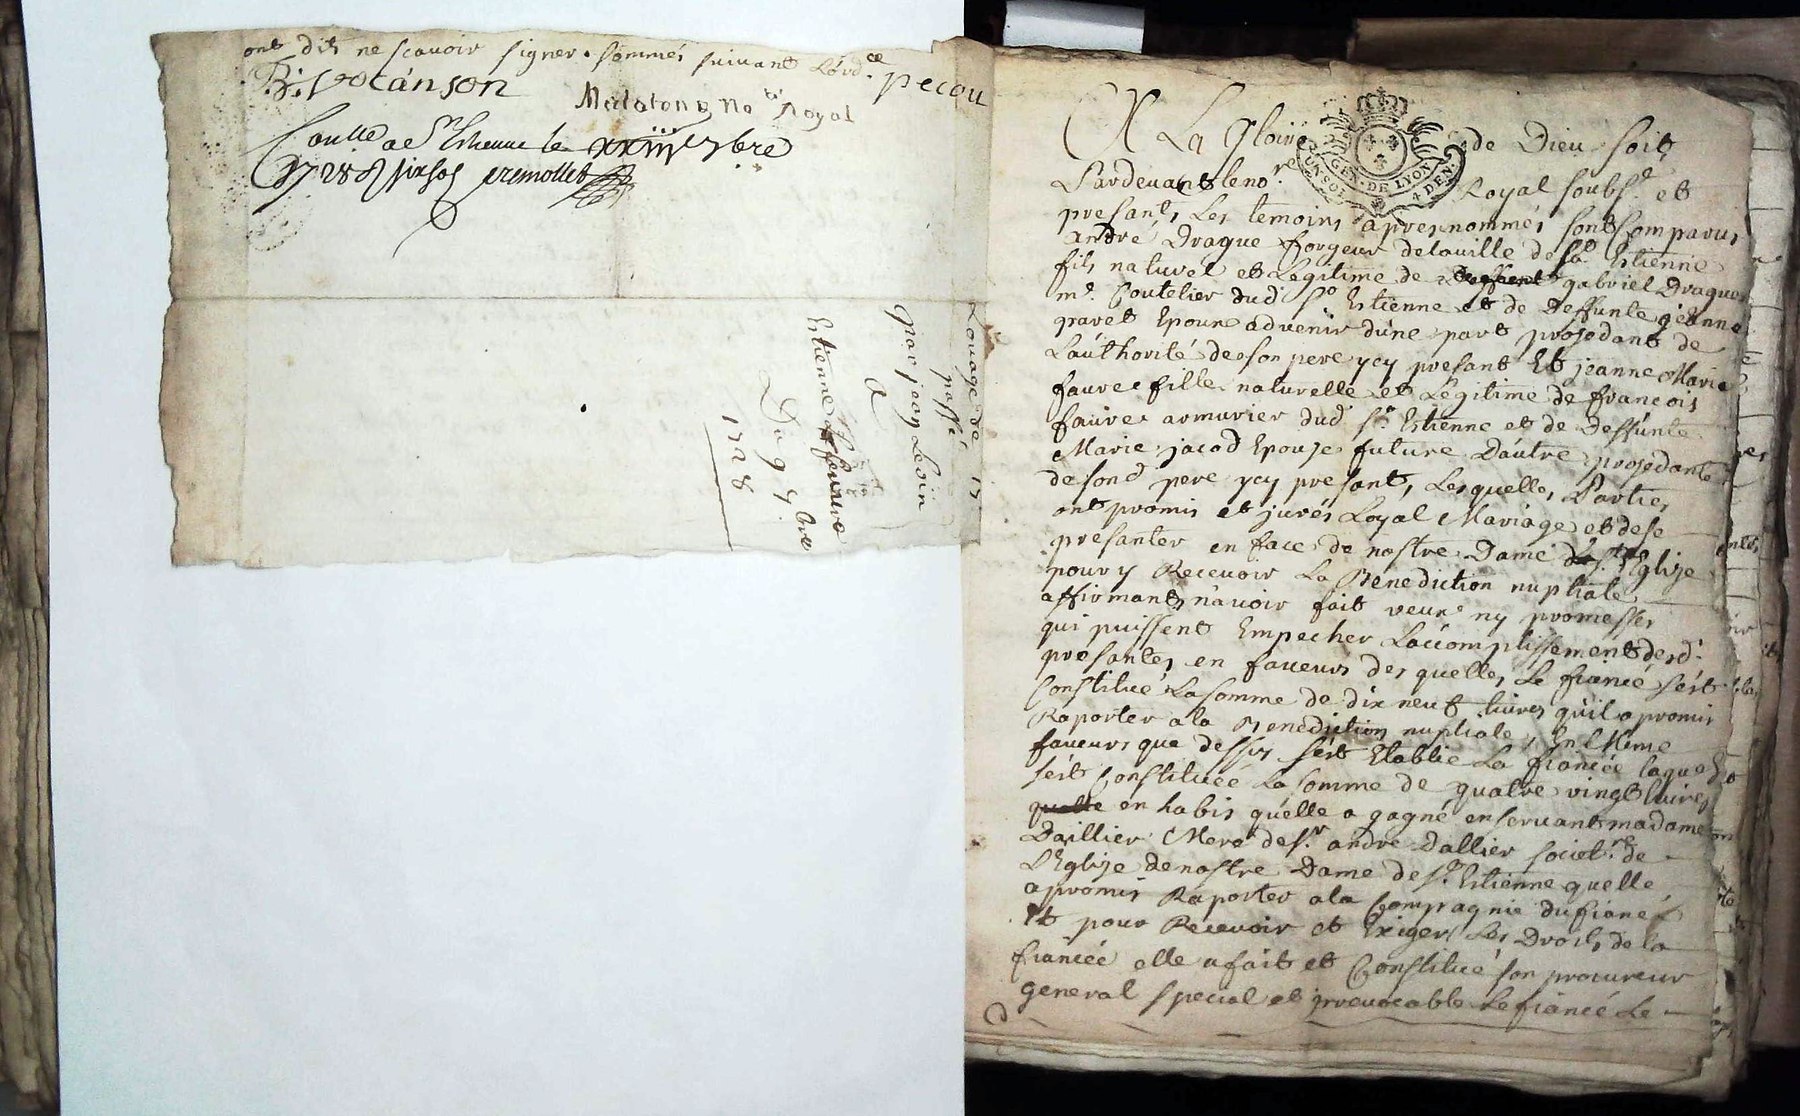 ont dit ne scavoir signer. sommés suivant Lord.ce
B: vocanson
pecou
Matalon No.re Royal
Con.lle a St Etienne le xxiiie 7bre
1728 R six sol
Louage de
passé
par jean Levin
A
Estienne Lefeuvre
Du 9 7.bre
1728
A La Gloire de Dieu soit
Pardevant le no.re Royal soubs.é et
presants Les temoins apres nommés sont Comparus
andré Draque forgeur de la ville de St. Estienne
fils naturel et Legitime de gabriel Draque
m.e Coutelier dud. St Estienne et de Deffunte jeanne
gravet Epoux advenir dune part prosedant de
Lauthorité de son pere ycy presant Et jeanne Marie
faure fille naturelle et Legitime de francois
faure armurier dud. St. Estienne et de Deffunte
Marie jacod Epouze future Dautre prosedante
de sond. pere ycy presant, Lesquelles Parties
ont promis et jurés Loyal Mariage et de se
presanter en face de nostre Dame Ste. Eglize
pour y Recevoir La Benediction nuptiale
affirmants n'avoir fait veux ny promesses
qui puissent Empecher Laccomplissement desd.
presantes en faveurs des quelles Le fiancé sest
Constitué La somme de dix neuf livres qu'il a promis
Raporter a la Benediction nuptiale, En Meme
faveurs que dessus sest Etablie La fiancée laquelle
sest Constituée La somme de quatre vingt livres
en habis qu'elle a gagné en servant madame
Daillier Mere de Sr. andre Dallier societ.re de
L'Eglize de nostre Dame de St. Estienne quelle
a promis Raporter a la Compagnie du fiancé
Et pour Recevoir et Exiger Les Droits de la
fiancée elle a fait et Constitué son procureur
general special et irrevocable Le fiancé Le
GEN. DE LYON
UN SOL 4 DEN.